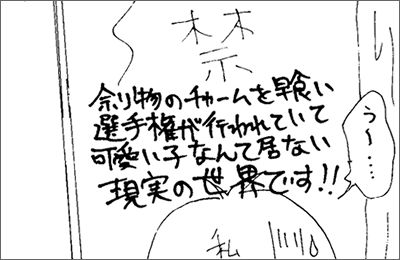 禁
余り物のチャームを早食い
選手権が行われていて
可愛い子なんて居ない
現実の世界です!!
う〜…
私